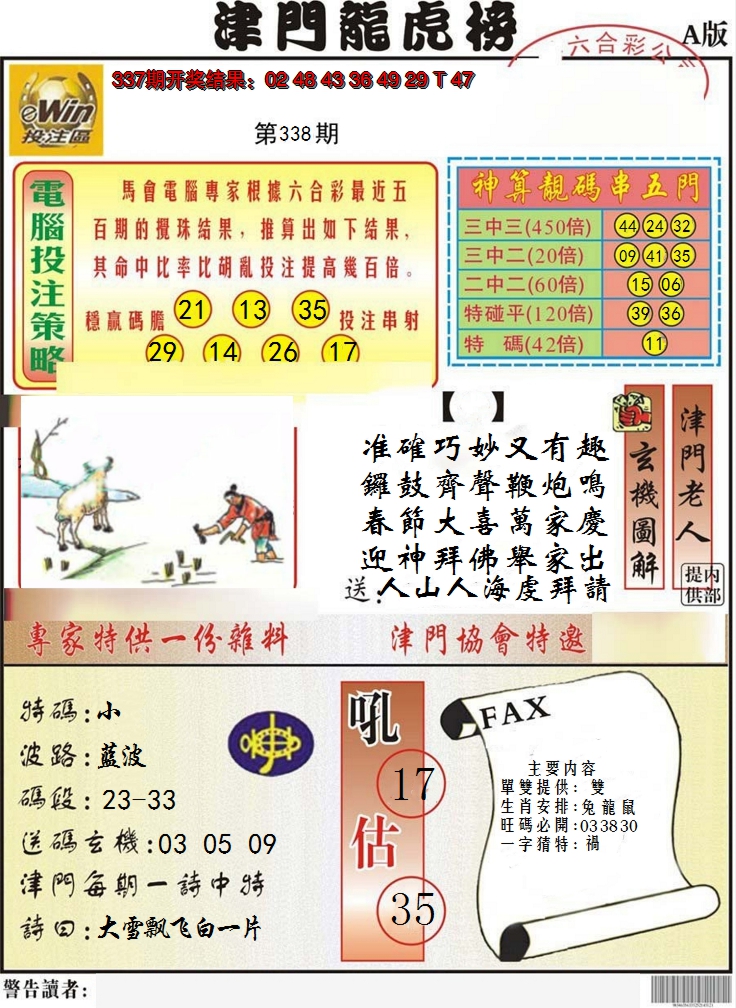 津門龍虎榜
六合彩公
A版
337期开奖结果：02 48 43 36 49 29 T 47
eWin
投注區
第338期
電腦投注策略
馬會電腦專家根據六合彩最近五
百期的攪珠結果，推算出如下結果，
其命中比率比胡亂投注提高幾百倍。
穩贏碼膽 21 13 35 投注串射
29 14 26 17
神算靚碼串五門
三中三(450倍) 44 24 32
三中二(20倍) 09 41 35
二中二(60倍) 15 06
特碰平(120倍) 39 36
特 碼(42倍) 11
【 】
准確巧妙又有趣
鑼鼓齊聲鞭炮鳴
春節大喜萬家慶
迎神拜佛舉家出
送：人山人海虔拜請
玄機圖解
津門老人
内部提供
專家特供一份雜料
津門協會特邀
特碼：小
波路：藍波
碼段：23-33
送碼玄機：03 05 09
津門每期一詩中特
詩曰：大雪飘飞白一片
吼
17
估
35
FAX
主要内容
單雙提供：雙
生肖安排：兔龍鼠
旺碼必開：033830
一字猜特：禍
警告讀者：